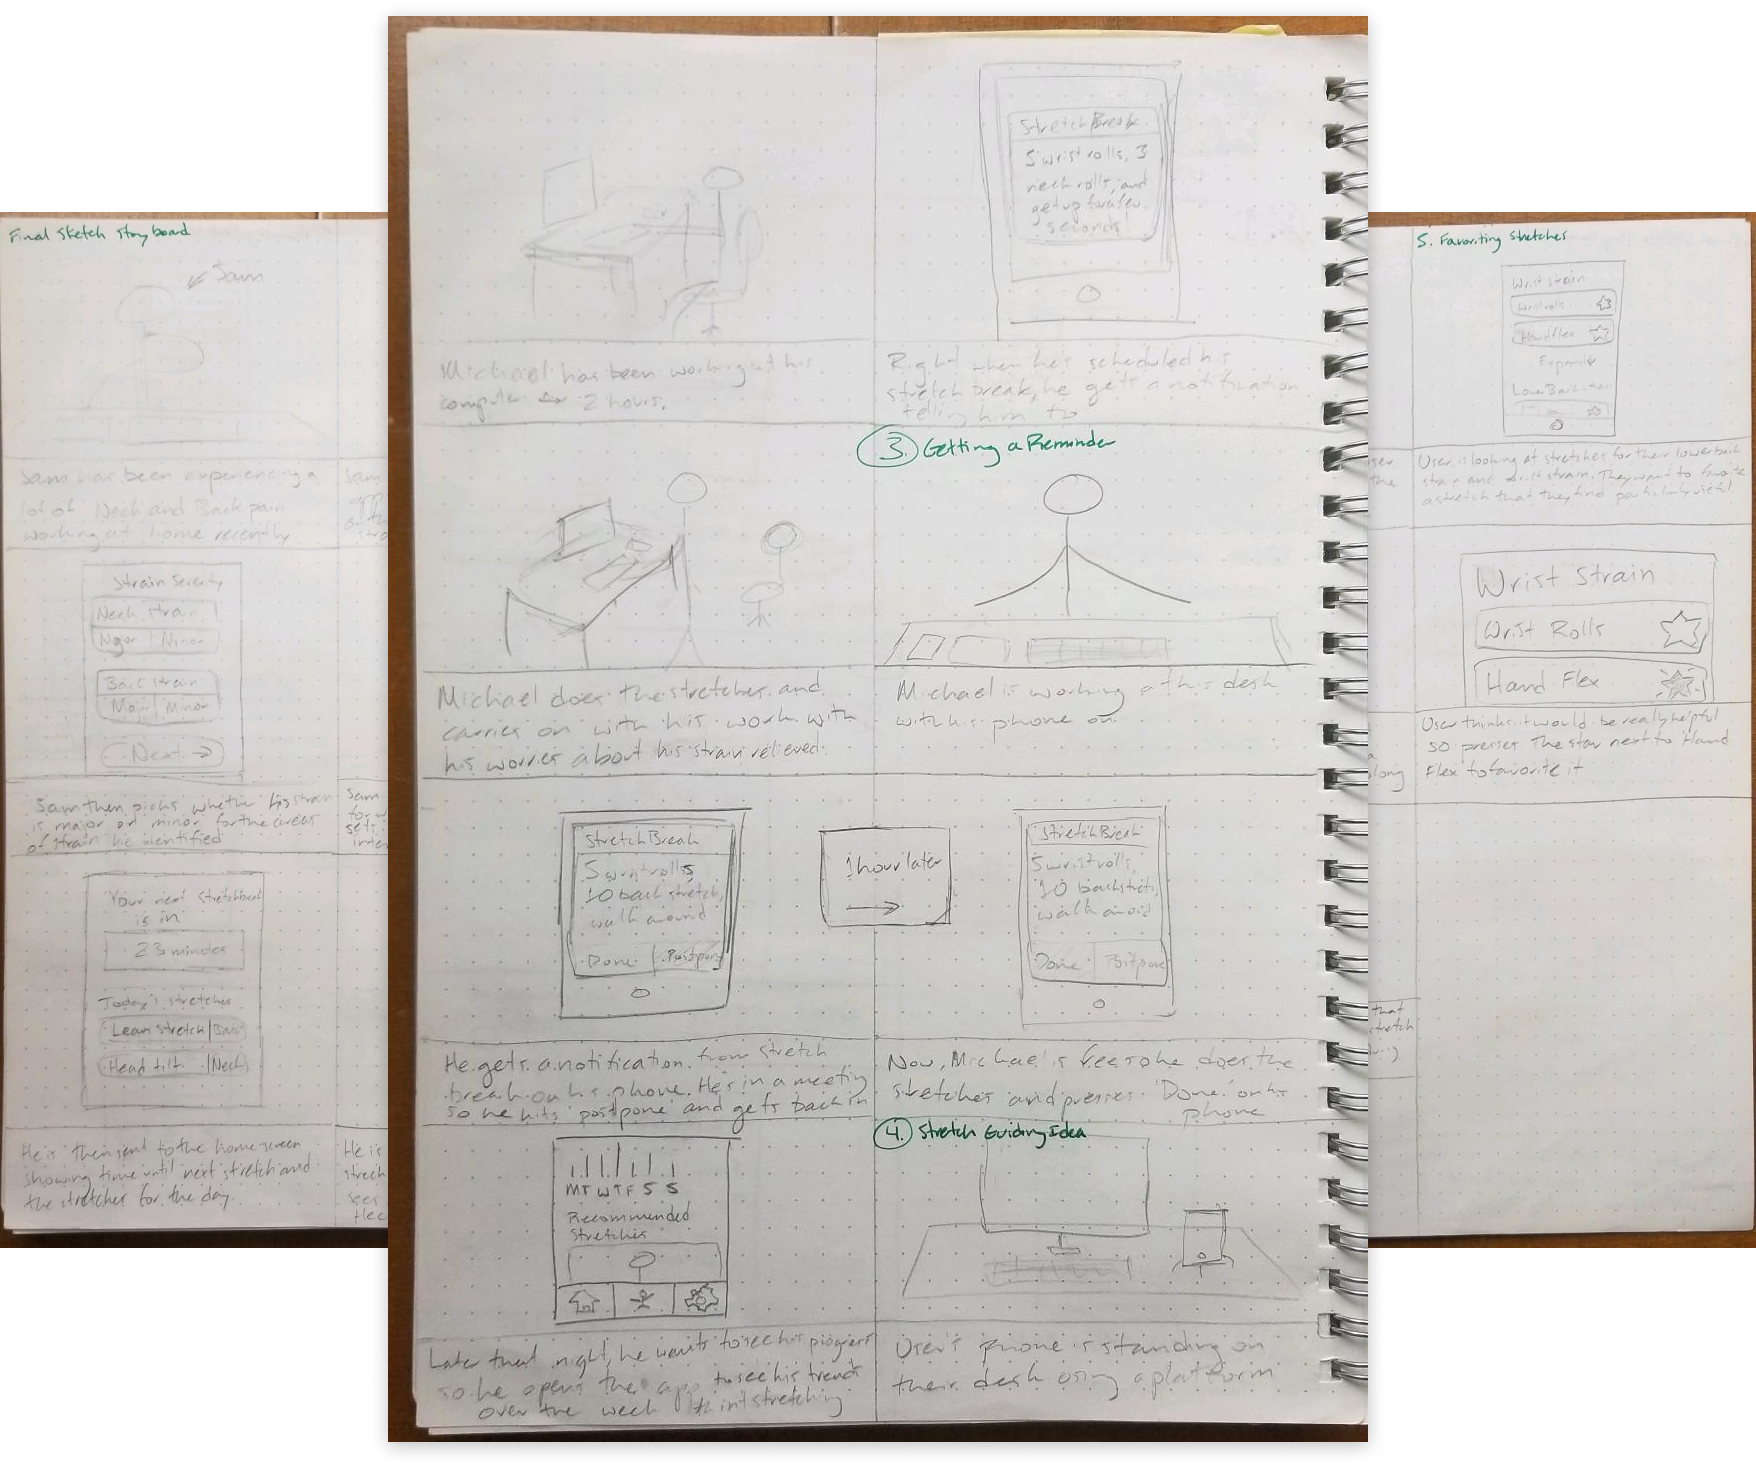 Final Sketch Storyboard
Sam
Sam has been experiencing a
lot of Neck and Back pain
working at home recently
Sam
Strain Severity
Neck strain
Major | Minor
Back strain
Major | Minor
Next →
Sam then picks whether his strain
is major or minor for the areas
of strain he identified
Sam
Your next stretch break
is in
23 minutes
Today's stretches
Lean stretch | Back
Head tilt | Neck
He is then sent to the home screen
showing time until next stretch and
the stretches for the day.
He is
sees
Michael has been working at his
computer for 2 hours.
Stretch Break
5 wrist rolls, 3
neck rolls, and
get up for a few
seconds
Right when he's scheduled his
stretch break, he gets a notification
telling him to
Michael does the stretches and
carries on with his work with
his worries about his strain relieved.
3. Getting a Reminder
Michael is working at his desk
with his phone on
Stretch Break
5 wrist rolls
10 back stretch,
walk around
Done | Postpone
1 hour later
→
He gets a notification from stretch
break on his phone. He's in a meeting
so he hits 'postpone' and gets back in
Stretch Break
5 wrist rolls,
10 back stretch,
walk around
Done | Postpone
Now, Michael is free so he does the
stretches and presses 'Done' on his
phone
M T W T F S S
Recommended
Stretches
Later that night, he wants to see his progress
so he opens the app to see his trends
over the week in stretching
4. Stretch Guiding Idea
User's phone is standing on
their desk using a platform
5. Favoriting Stretches
Wrist strain
Wrist rolls
Hand flex
Expand
Lower Back strain
User is looking at stretches for their lower back
strain and wrist strain. They want to favorite
a stretch that they find particularly useful
Wrist Strain
Wrist Rolls
Hand Flex
User thinks it would be really helpful
so presses the star next to Hand
Flex to favorite it
the
along
that
stretch